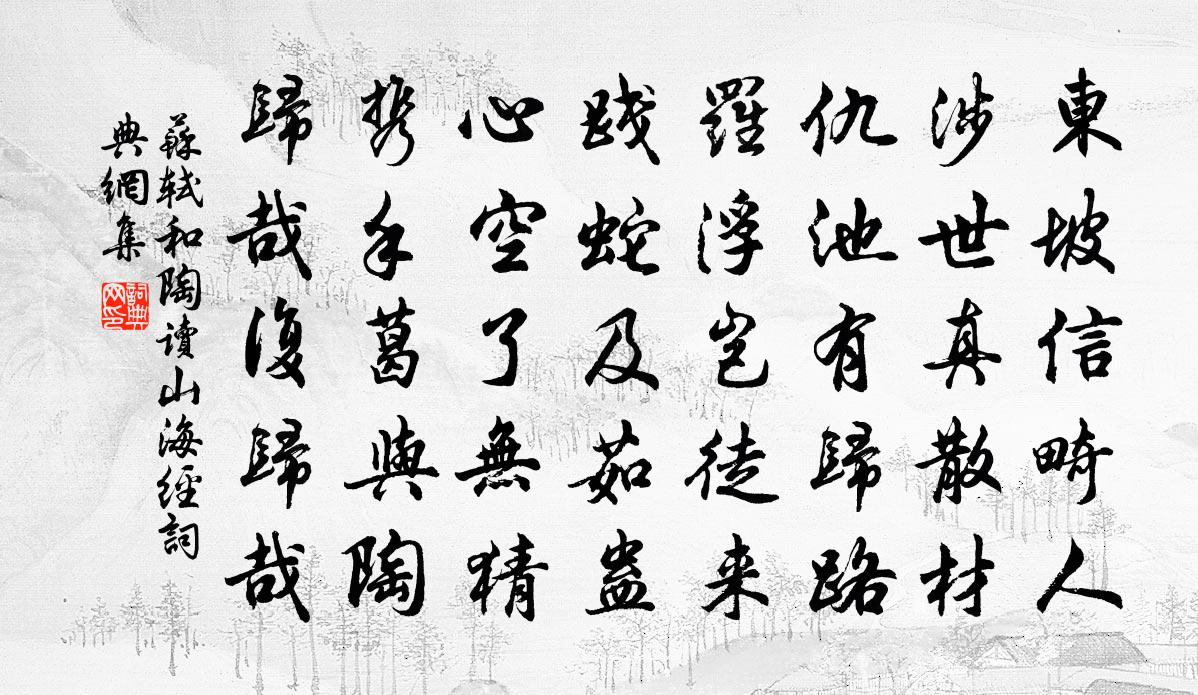 東坡信畸人
涉世真散材
仇池有歸路
羅浮豈徒来
踐蛇及茹蠱
心空了無猜
携手葛與陶
歸哉復歸哉
蘇軾和陶讀山海經詞
典網集
詞典
网印